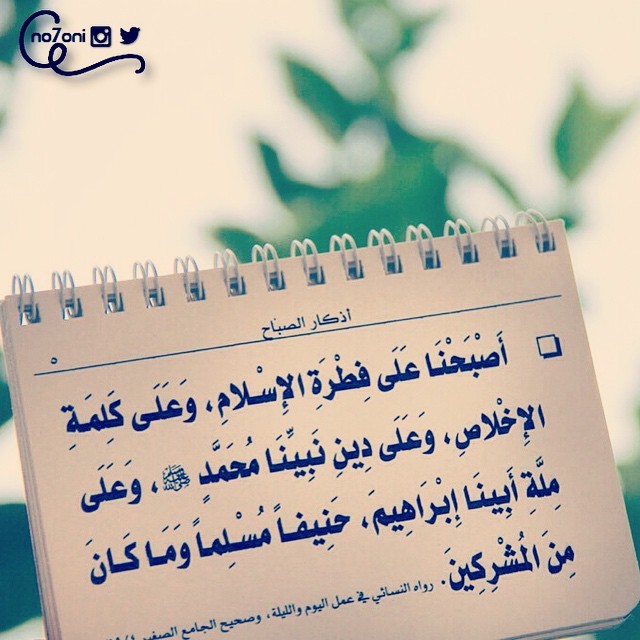 no7oni
أذكار الصباح
٥
أَصْبَحْنَا عَلَى فِطْرَةِ الإِسْلامِ، وَعَلَى كَلِمَةِ
الإِخْلاصِ، وَعَلَى دِينِ نَبِيِّنَا مُحَمَّدٍ ﷺ، وَعَلَى
مِلَّةِ أَبِينَا إِبْرَاهِيمَ، حَنِيفاً مُسْلِماً وَمَا كَانَ
مِنَ المُشْرِكِينَ. رواه النسائي في عمل اليوم والليلة، وصحيح الجامع الصغير